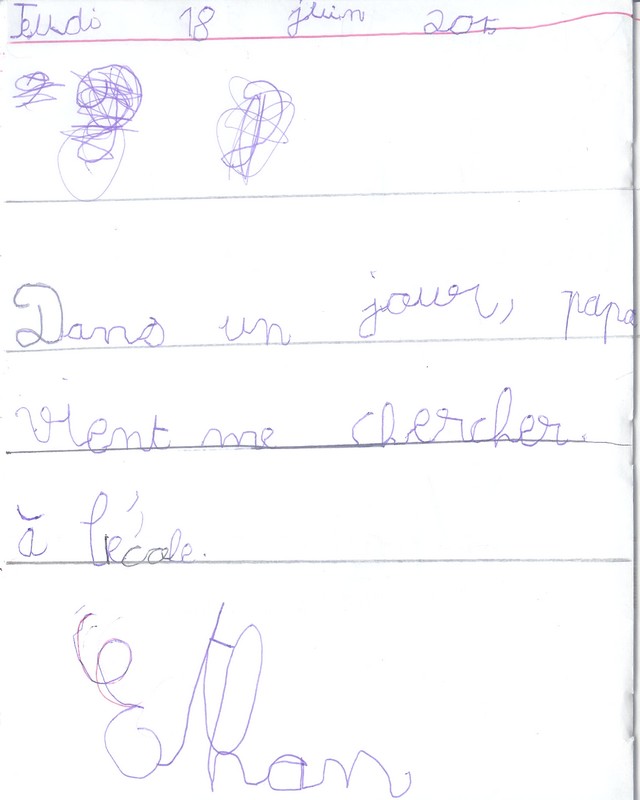 Jeudi 18 juin 2015
Dans un jour, papa
vient me chercher.
à l'école.
Ethan